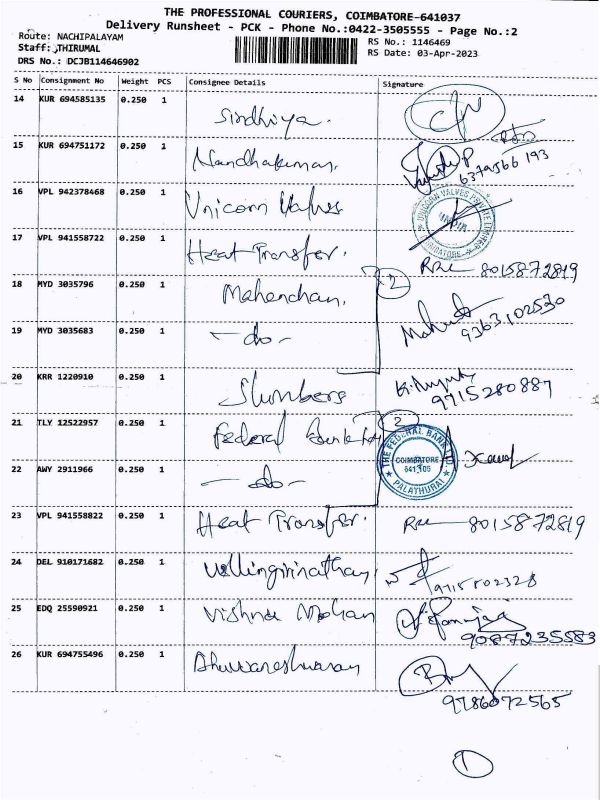 THE PROFESSIONAL COURIERS, COIMBATORE-641037
Delivery Runsheet - PCK - Phone No.:0422-3505555 - Page No.:2
Route: NACHIPALAYAM
Staff: THIRUMAL
DRS No.: DCJB114646902
RS No.: 1146469
RS Date: 03-Apr-2023
S No Consignment No Weight PCS Consignee Details Signature
14 KUR 694585135 0.250 1 Sindhiya.
15 KUR 694751172 0.250 1 Nandhakumar. 6379566 193
16 VPL 942378468 0.250 1 Unicorn Valves UNICORN VALVES PRIVATE LIMITED INDIA COIMBATORE
17 VPL 941558722 0.250 1 Heat Transfer. 8015872819
18 MYD 3035796 0.250 1 Mahenchan. 2 9363102530
19 MYD 3035683 0.250 1 -do-
20 KRR 1220910 0.250 1 Slumbers 9715280887
21 TLY 12522957 0.250 1 Federal Bank 2 THE FEDERAL BANK LTD. COIMBATORE 641 105 PALATHURAI
22 AWY 2911966 0.250 1 -do-
23 VPL 941558822 0.250 1 Heat Transfer. 8015872819
24 DEL 910171682 0.250 1 Vellingirinathan 9715802328
25 EDQ 25590921 0.250 1 Vishnu Mohan 9087235583
26 KUR 694755496 0.250 1 Bhuvaneshwaran 9786072565
1